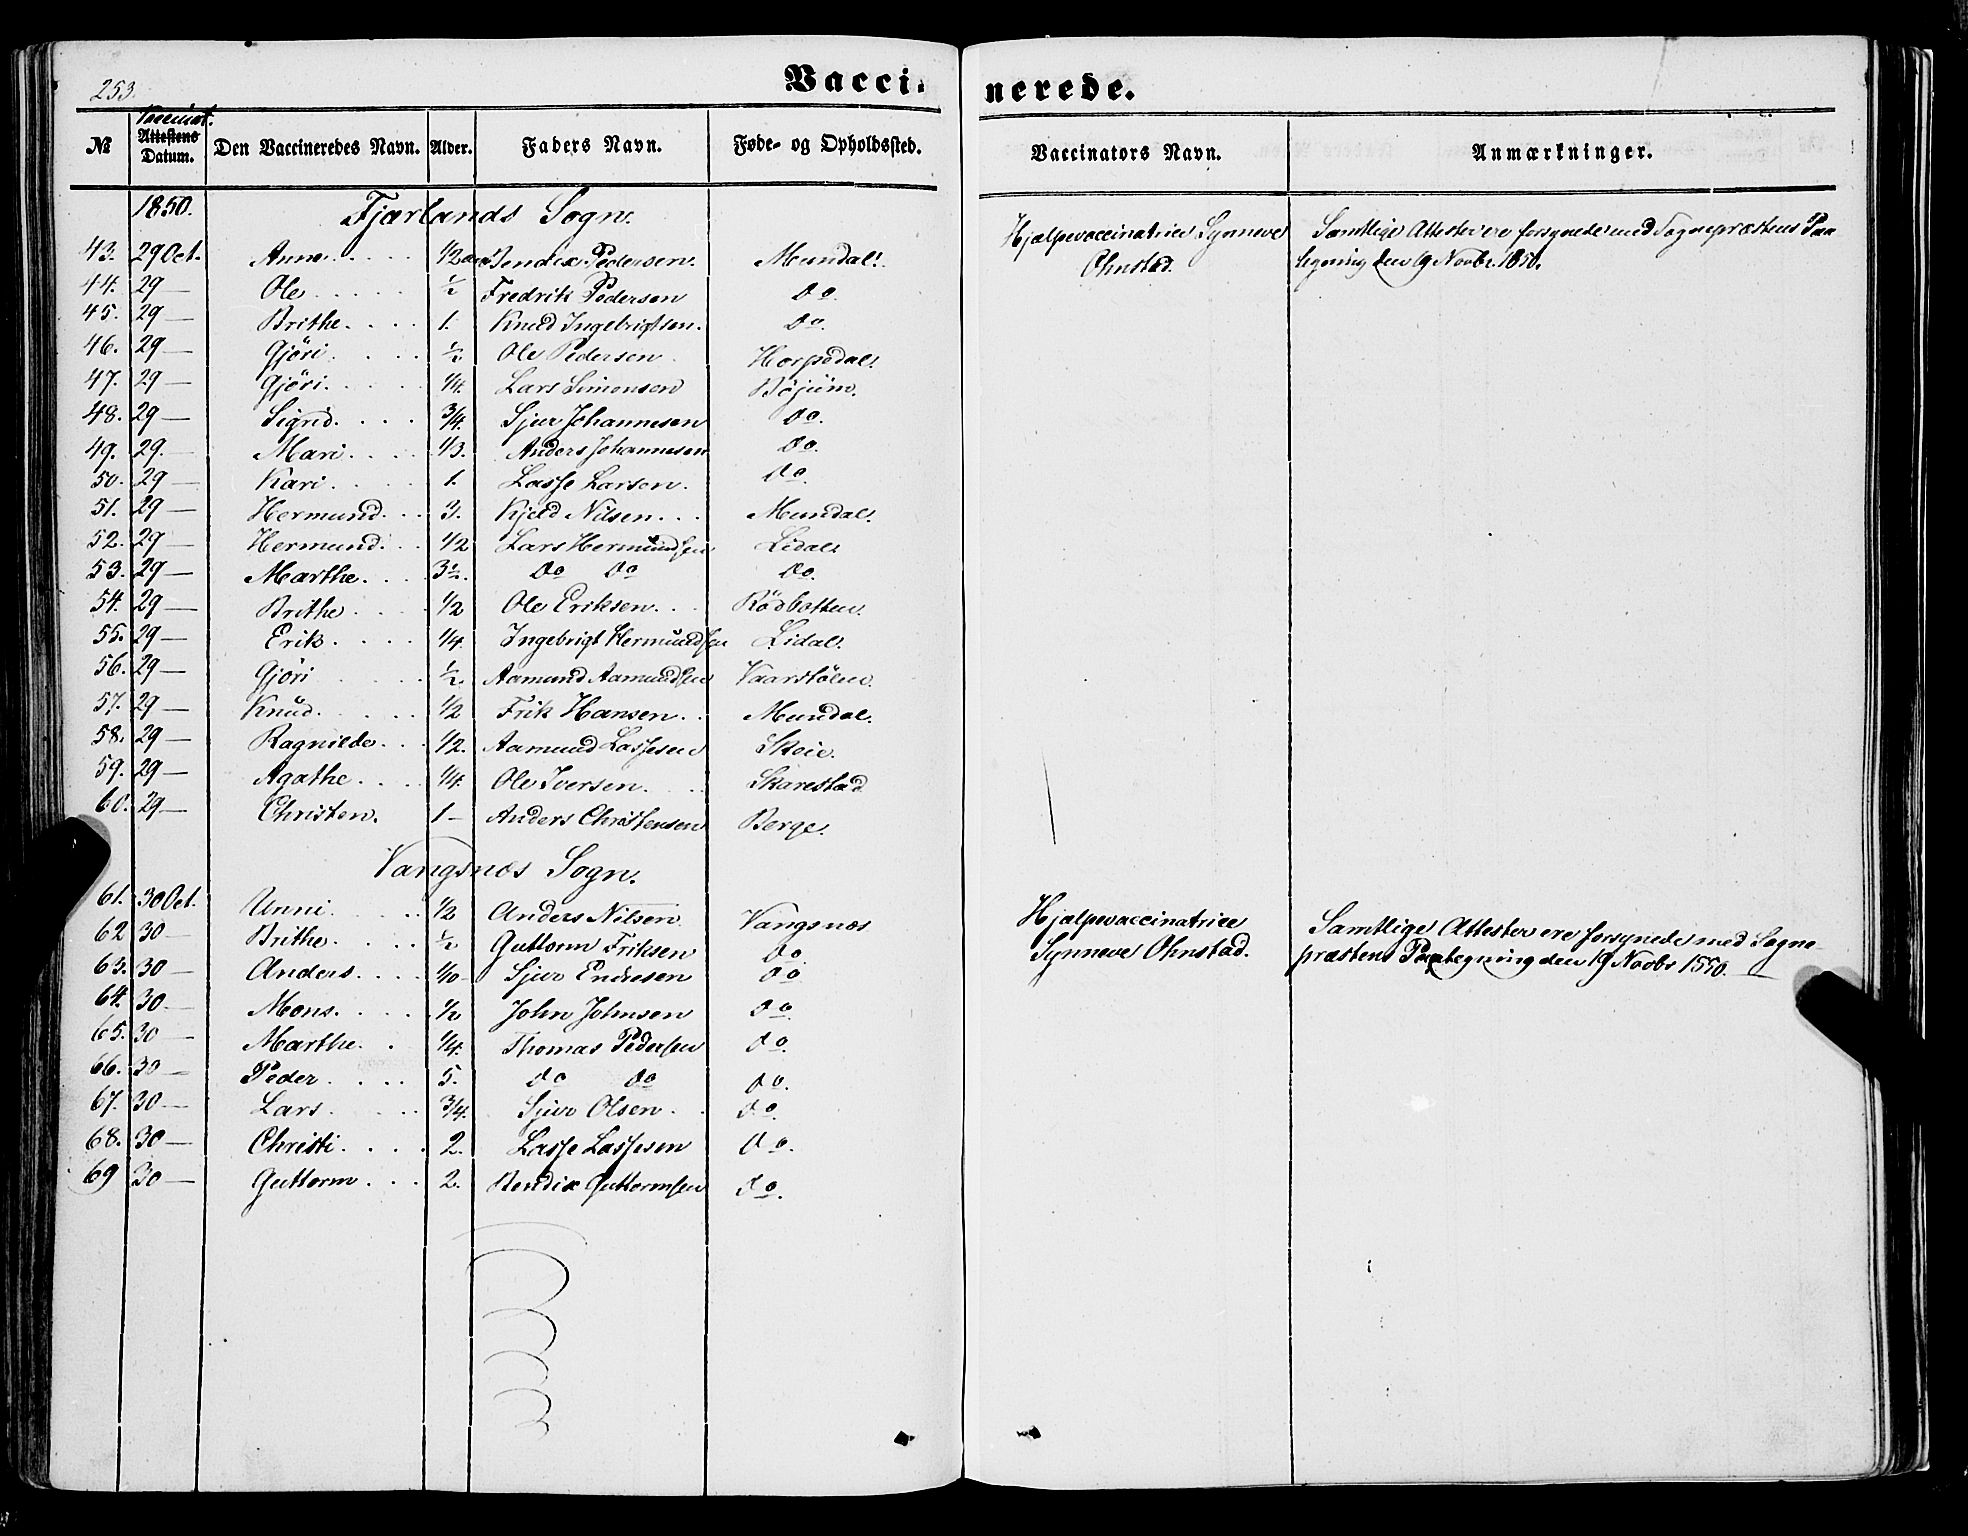 253.
Vaccinerede.
№ Vaccinat. Attestens Datum. Den Vaccineredes Navn. Alder. Faders Navn. Føde- og Opholdssted. Vaccinators Navn. Anmærkninger.
1850. Fjærlands Sogn.
43. 29 Oct. Anne..... 1/2 Bendix Pedersen. Mundal. Hjælpevaccinatrice Synneve Ohnstad. Samtlige Attester ere forsynede med Sognepræstens Paategning den 19 Novbr. 1850.
44. 29 — Ole..... ½ Fredrik Pedersen do.
45. 29 — Brithe.... 1. Knud Ingebrigtsen. do.
46. 29 — Gjöri.... ½ Ole Pedersen Horpedal.
47. 29 — Gjöri.... 1/4. Lars Simonsen Bøjum.
48. 29 — Sigrid.... 3/4. Sjur Johannesen do.
49. 29. — Mari.... 1/3. Anders Johannesen do.
50. 29 — Kari.... 1. Lasse Larsen. do.
51. 29 — Hermund... 3. Kjeld Nilsen... Mundal.
52. 29 — Hermund... 1/2 Lars Hermundsen Lidal.
53. 29 — Marthe.... 3½. do do do.
54. 29 — Brithe.... 1/2 Ole Eriksen... Rödbotten.
55. 29 — Erik.... 1/4. Ingebrigt Hermundsen Lidal.
56. 29 — Gjöri ½. Aamund Aamundsen Vaarstölen.
57. 29 — Knud..... 1/2 Erik Hansen.. Mundal.
58. 29 — Ragnilde... 1/2. Aamund Lassesen Skeie.
59. 29 — Agathe.... 1/4. Ole Iversen... Skarestad
60. 29 — Christen. 1 — Anders Christensen Berge.
Vangsnæs Sogn.
61. 30 Oct. Unni..... 1/2 Anders Nilsen. Vangsnæs Hjælpevaccinatrice Synneve Ohnstad. Samtlige Attester ere forsynede med Sognepræstens Paategning den 19 Novbr 1850.
62 30 — Brithe.... ½ Guttorm Eriksen do
63. 30 — Anders.... 1/10 Sjur Endresen do
64. 30 — Mons..... 1/2 John Johnsen do.
65. 30 — Marthe.. 1/4. Thomas Pedersen do.
66. 30 — Peder.... 5. do do do.
67. 30 — Lars..... 3/4. Sjur Olsen.. do.
68. 30 — Christi.... 2. Lasse Lassesen do.
69 30 — Guttorm... 2. Bendix Guttormsen do.